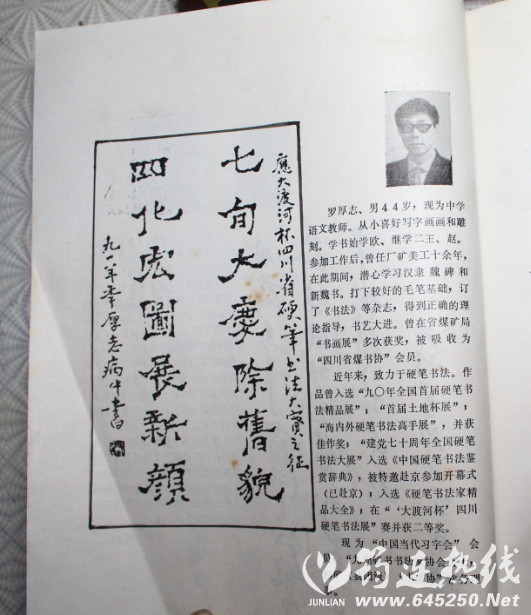 應大渡河杯四川省硬筆书法大賽之征
七旬大慶除舊貌
四化宏圖展新顏
九一年季厚志病中書
罗厚志、男44岁，现为中学
语文教师。从小喜好写字画画和雕
刻。学书始学欧、继学二王、赵。
参加工作后，曾任厂矿美工十余年，
在此期间，潜心学习汉隶魏碑和
新魏书。打下较好的毛笔基础，订
了《书法》等杂志，得到正确的理
论指导，书艺大进。曾在省煤矿局
“书画展”多次获奖，被吸收为
“四川省煤书协”会员。
近年来，致力于硬笔书法。作
品曾入选“九〇年全国首届硬笔书
法精品展”；“首届土地杯展”；
“海内外硬笔书法高手展”，并获
佳作奖；“建党七十周年全国硬笔
书法大展”入选《中国硬笔书法鉴
赏辞典》，被特邀赴京参加开幕式
（已赴京）；入选《硬笔书法家精
品大全》；在“‘大渡河杯’四川
硬笔书法展”赛并获二等奖。
现为“中国当代习字会”会
员
筠连热线
JUNLIAN
www.645250.Net